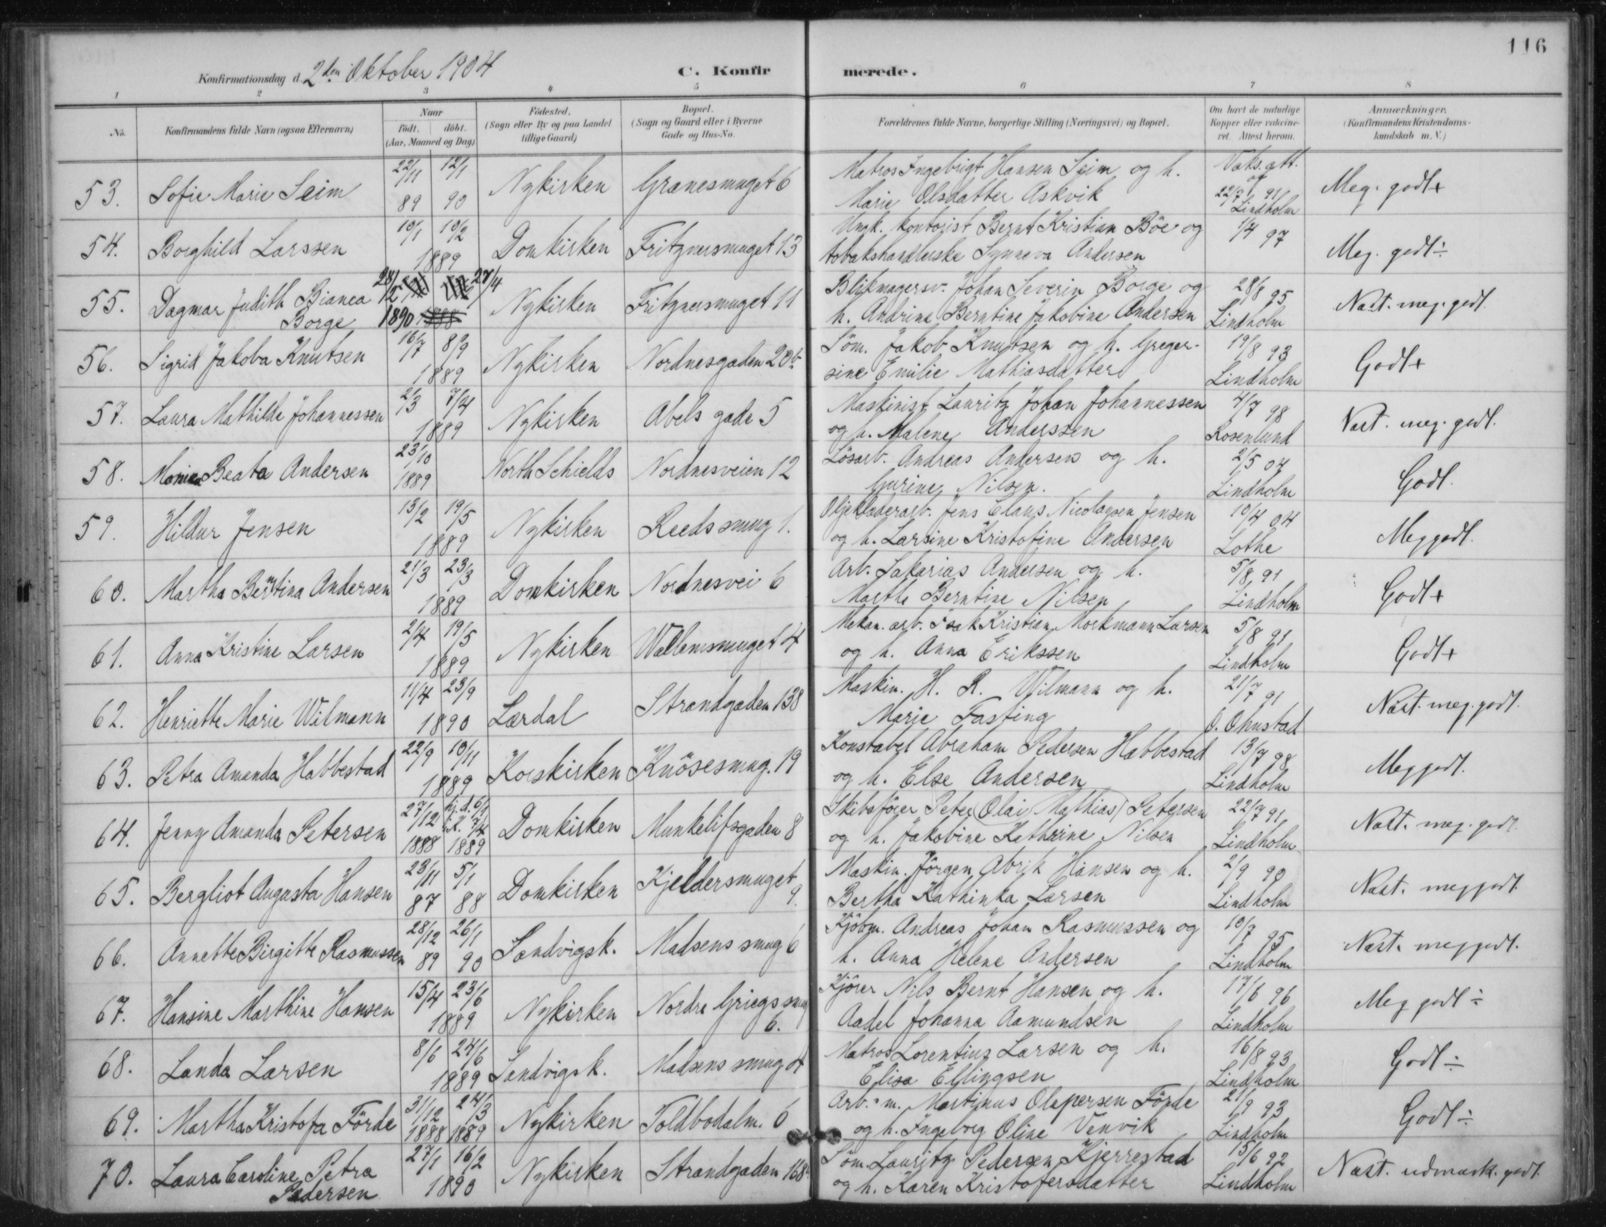 116
Konfirmationsdag d. 2den Oktober 1904 C. Konfirmerede.
1 2 3 4 5 6 7 8
No. Konfirmandens fulde Navn (ogsaa Efternavn) Naar født. døbt. (Aar, Maaned og Dag) Fødested. (Sogn eller By og paa Landet tillige Gaard) Bopæl. (Sogn og Gaard eller i Byerne Gade og Hus-No. Forældrenes fulde Navne, borgerlige Stilling (Næringsvei) og Bopæl. Om havt de naturlige Kopper eller vaccineret. Attest herom. Anmærkninger. (Konfirmandens Kristendomskundskab m. V.)
53. Sofie Marie Seim 22/11 89 12/1 90 Nykirken Granesmuget 6 Matros Ingebrigt Hansen Seim og h. Vaks. att.
Marie Olsdatter Askvik 22/7 91 Lindholm Meg. godt +
54. Borghild Larssen 10/1 10/2 1889 Domkirken Fritznersmuget 13 Ungk. kontorist Bernt Kristian Böe og 1/4 97
tobakshandlerske Synneva Andersen Meg. godt ÷
55. Dagmar Judith Bianca Borge 28/12 27/4 1890 Nykirken Fritznersmuget 11 Blikmagersv. Johan Severin Borge og 28/8 95
h. Andrine Berntine Jakobine Andersen Lindholm Næst. meg. godt
56. Sigrid Jakoba Knutsen 16/7 8/9 1889 Nykirken Nordnesgaden 20b. Söm. Jakob Knutsen og h. Greger- 19/8 93
sine Emilie Mathiasdatter Lindholm Godt +
57. Laura Mathilde Johannessen 2/3 7/4 1889 Nykirken Abels gade 5 Maskinist Lauritz Johan Johannessen 4/7 98
og h. Malene Anderssen Rosenlund Næst. meg. godt.
58. Beata Andersen 23/10 1889 North Schields Nordnesveien 12 Lösarb. Andreas Andersen og h. 2/5 04
Gurine Nilsen. Lindholm Godt.
59. Hildur Jensen 13/2 19/5 1889 Nykirken Reeds smug 1. Oljeklæderarb. Jens Claus Nicolaysen Jensen 10/4 04
og h. Larsine Kristofine Andersen Lothe Meg godt.
60. Martha Bertina Andersen 21/3 23/3 1889 Domkirken Nordnesvei 6 Arb. Sakarias Andersen og h. 5/8 91
Marthe Berntine Nilsen Lindholm Godt +
61. Anna Kristine Larsen 2/4 19/5 1889 Nykirken Wallemsmuget 4 Mekan. arb. Isak Kristian Morkmann Larsen 5/8 91
og h. Anna Erikssen Lindholm Godt +
62. Henriette Marie Wilmann 11/4 23/9 1890 Lærdal Strandgaden 138 Maskin. H. R. Wilmann og h. 21/7 91
Marie Fasting O. Ohnstad Næst. meg. godt.
63. Petra Amanda Habbestad 22/9 10/11 1889 Korskirken Knösesmug. 19 Konstabel Abraham Pedersen Habbestad 13/7 98
og h. Else Andersen Lindholm Meg godt.
64. Jenny Amanda Petersen 27/12 1888 1889 Domkirken Munkelifsgaden 8 Skibsförer Peter (Olai Mathias) Petersen 22/7 91
og h. Jakobine Kathrine Nilsen Lindholm Næst. meg. godt
65. Bergliot Augusta Hansen 23/11 87 5/1 88 Domkirken Kjeldersmuget 9. Maskin. Jörgen Hansen og h. 2/9 90
Bertha Kathinka Larsen Lindholm Næst. meg godt
66. Annette Birgitte Rasmussen 28/12 89 26/1 90 Sandvigsk. Madsens smug 6 Kjöbm. Andreas Johan Rasmussen og 10/7 95
h. Anna Helene Andersen Lindholm Næst. meg godt.
67. Hansine Marthine Hansen 15/4 23/6 1889 Nykirken Nordre Griegs smug 6. Kjörer Nils Bernt Hansen og h. 17/6 96
Aadel Johanna Aamundsen Lindholm Meg godt ÷
68. Landa Larsen 8/6 24/6 1889 Sandvigsk. Madsens smug 4 Matros Lorentius Larsen og h. 16/8 93
Elisa Ellingsen Lindholm Godt ÷
69. Martha Kristofa Förde 31/12 1888 24/3 1889 Nykirken Toldbodalm. 6 Arb.m. Martinus Olapersen Förde 21/9 93
og h. Ingeborg Oline Venvik Lindholm Godt ÷
70. Laura Caroline Petra Pedersen 27/1 16/2 1890 Nykirken Strandgaden 168 Söm. Lauritz Pedersen Kjerrestad 15/6 92
og h. Karen Kristofersdatter Lindholm Næst. udmærk. godt